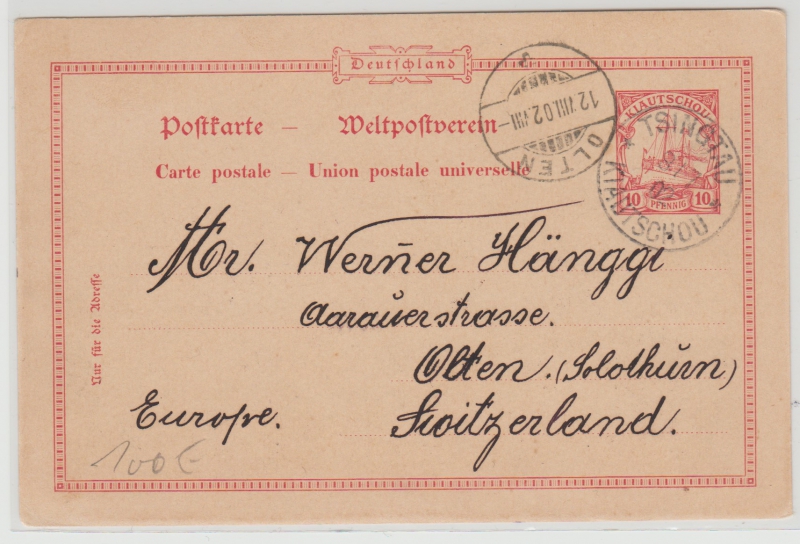 Deutschland
Postkarte — Weltpostverein
Carte postale — Union postale universelle
OLTEN
12.VIII.02.VIII
KIAUTSCHOU
10 PFENNIG 10
* TSINGTAU *
KIAUTSCHOU
Nur für die Adresse
Mr. Werner Hänggi
Aarauerstrasse.
Olten. (Solothurn)
Europe. Switzerland.
100€